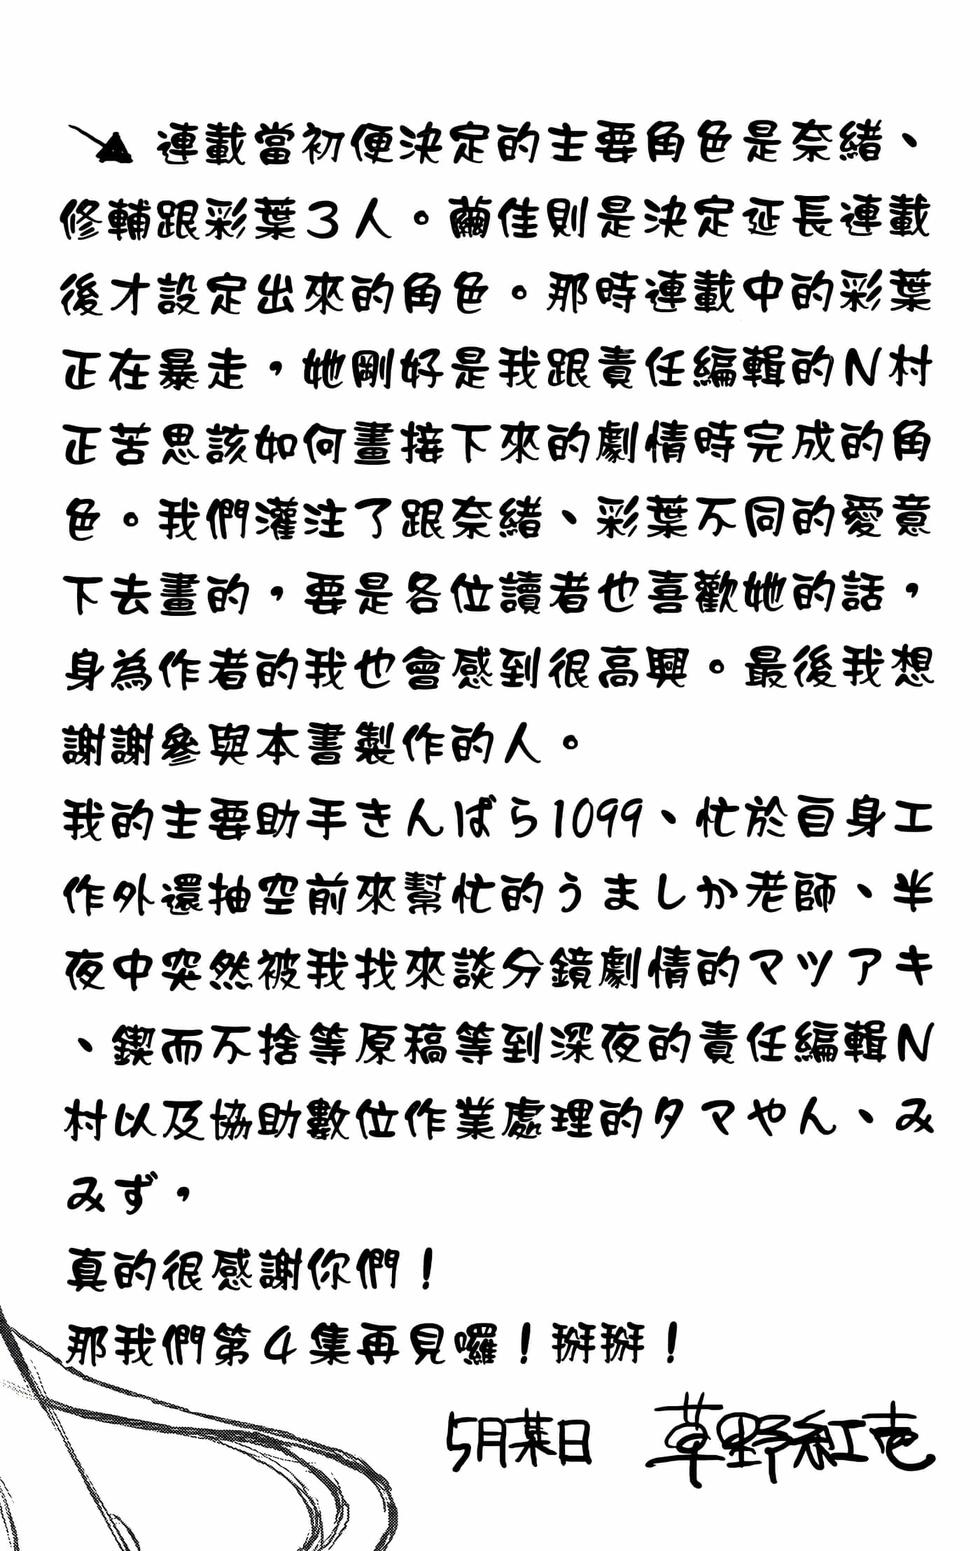 連載當初便決定的主要角色是奈緒、
修輔跟彩葉3人。繭佳則是決定延長連載
後才設定出來的角色。那時連載中的彩葉
正在暴走，她剛好是我跟責任編輯的N村
正苦思該如何畫接下來的劇情時完成的角
色。我們灌注了跟奈緒、彩葉不同的愛意
下去畫的，要是各位讀者也喜歡她的話，
身為作者的我也會感到很高興。最後我想
謝謝參與本書製作的人。
我的主要助手きんばら1099、忙於自身工
作外還抽空前來幫忙的うましか老師、半
夜中突然被我找來談分鏡劇情的マツアキ
、鍥而不捨等原稿等到深夜的責任編輯N
村以及協助數位作業處理的タマやん、み
みず，
真的很感謝你們！
那我們第4集再見囉！掰掰！
5月某日 草野紅壱